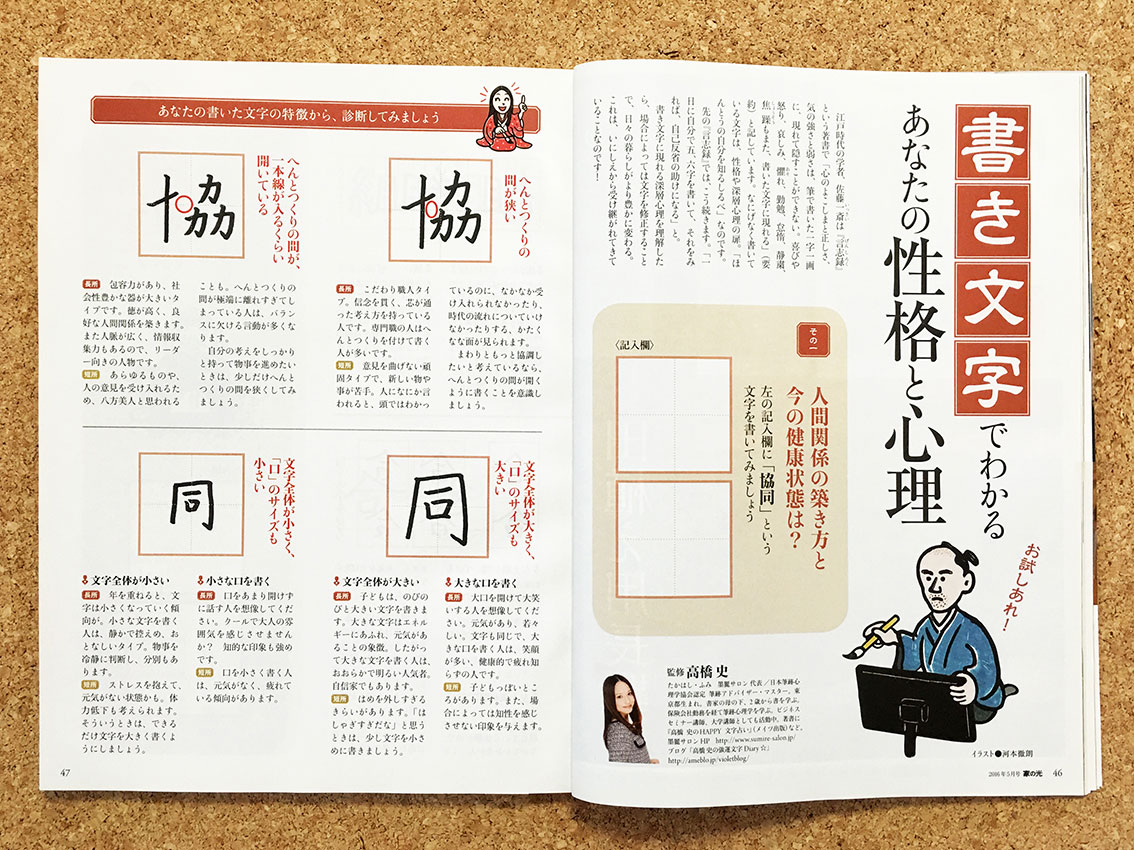 書き文字でわかる
あなたの性格と心理
お試しあれ！
江戸時代の学者、佐藤一斎は『言志録』
という著書で「心のよこしまと正しさ、
気の強さと弱さは、筆で書いた一字一画
に、現れて隠すことができない。喜びや
怒り、哀しみ、懼れ、勤勉、怠惰、静粛、
焦躁もまた、書いた文字に現れる」（要
約）と記しています。なにげなく書いて
いる文字は、性格や深層心理の扉。「ほ
んとうの自分を知るしるべ」なのです。
先の『言志録』では、こう続きます。「一
日に自分で五、六字を書いて、それをみ
れば、自己反省の助けになる」と。
書き文字に現れる深層心理を理解した
ら、場合によっては文字を修正すること
で、日々の暮らしがより豊かに変わる。
これは、いにしえから受け継がれてきて
いることなのです！
その一
人間関係の築き方と
今の健康状態は？
左の記入欄に「協同」という
文字を書いてみましょう
〈記入欄〉
監修 高橋 史
たかはし・ふみ 墨鬣サロン 代表／日本筆跡心
理学協会認定 筆跡アドバイザー・マスター。東
京都生まれ。書家の母の下、2歳から書を学ぶ。
保険会社勤務を経て筆跡心理学を学ぶ。ビジネス
セミナー講師、大学講師としても活動中。著書に
『高橋 史のHAPPY 文字占い』（メイツ出版）など。
墨鬣サロンHP http://www.sumire-salon.jp/
ブログ「高橋 史の強運文字Diary☆」
http://ameblo.jp/violetblog/
イラスト●河本徹朗
2016年5月号 家の光 46
あなたの書いた文字の特徴から、診断してみましょう
へんとつくりの
間が狭い
協
長所 こだわり職人タイ
プ。信念を貫く、芯が通
った考え方を持っている
人です。専門職の人はへ
んとつくりを付けて書く
人が多いです。
短所 意見を曲げない頑
固タイプで、新しい物や
事が苦手。人になにか言
われると、頭ではわかっ
ているのに、なかなか受
け入れられなかったり、
時代の流れについていけ
なかったりする、かたく
なな面が見られます。
まわりともっと協調し
たいと考えているなら、
へんとつくりの間が開く
ように書くことを意識し
ましょう。
へんとつくりの間が、
一本線が入るくらい
開いている
協
長所 包容力があり、社
会性豊かな器が大きいタ
イプです。徳が高く、良
好な人間関係を築きます。
また人脈が広く、情報収
集力もあるので、リーダ
ー向きの人物です。
短所 あらゆるものや、
人の意見を受け入れるた
め、八方美人と思われる
ことも。へんとつくりの
間が極端に離れすぎてし
まっている人は、バラン
スに欠ける言動が多くな
ります。
自分の考えをしっかり
と持って物事を進めたい
ときは、少しだけへんと
つくりの間を狭くしてみ
ましょう。
文字全体が大きく、
「口」のサイズも
大きい
同
大きな口を書く
長所 大口を開けて大笑
いする人を想像してくだ
さい。元気があり、若々
しい。文字も同じで、大
きな口を書く人は、笑顔
が多い、健康的で疲れ知
らずの人です。
短所 子どもっぽいとこ
ろがあります。また、場
合によっては知性を感じ
させない印象を与えます。
文字全体が大きい
長所 子どもは、のびの
びと大きい文字を書きま
す。大きな文字はエネル
ギーにあふれ、元気があ
ることの象徴。したがっ
て大きな文字を書く人は、
おおらかで明るい人気者。
自信家でもあります。
短所 はめを外しすぎる
きらいがあります。「は
しゃぎすぎだな」と思う
ときは、少し文字を小さ
めに書きましょう。
文字全体が小さく、
「口」のサイズも
小さい
同
小さな口を書く
長所 口をあまり開けず
に話す人を想像してくだ
さい。クールで大人の雰
囲気を感じさせません
か？ 知的な印象も強め
です。
短所 口を小さく書く人
は、元気がなく、疲れて
いる傾向があります。
文字全体が小さい
長所 年を重ねると、文
字は小さくなっていく傾
向が。小さな文字を書く
人は、静かで控えめ、お
となしいタイプ。物事を
冷静に判断し、分別もあ
ります。
短所 ストレスを抱えて、
元気がない状態かも。体
力低下も考えられます。
そういうときは、できる
だけ文字を大きく書くよ
うにしましょう。
47